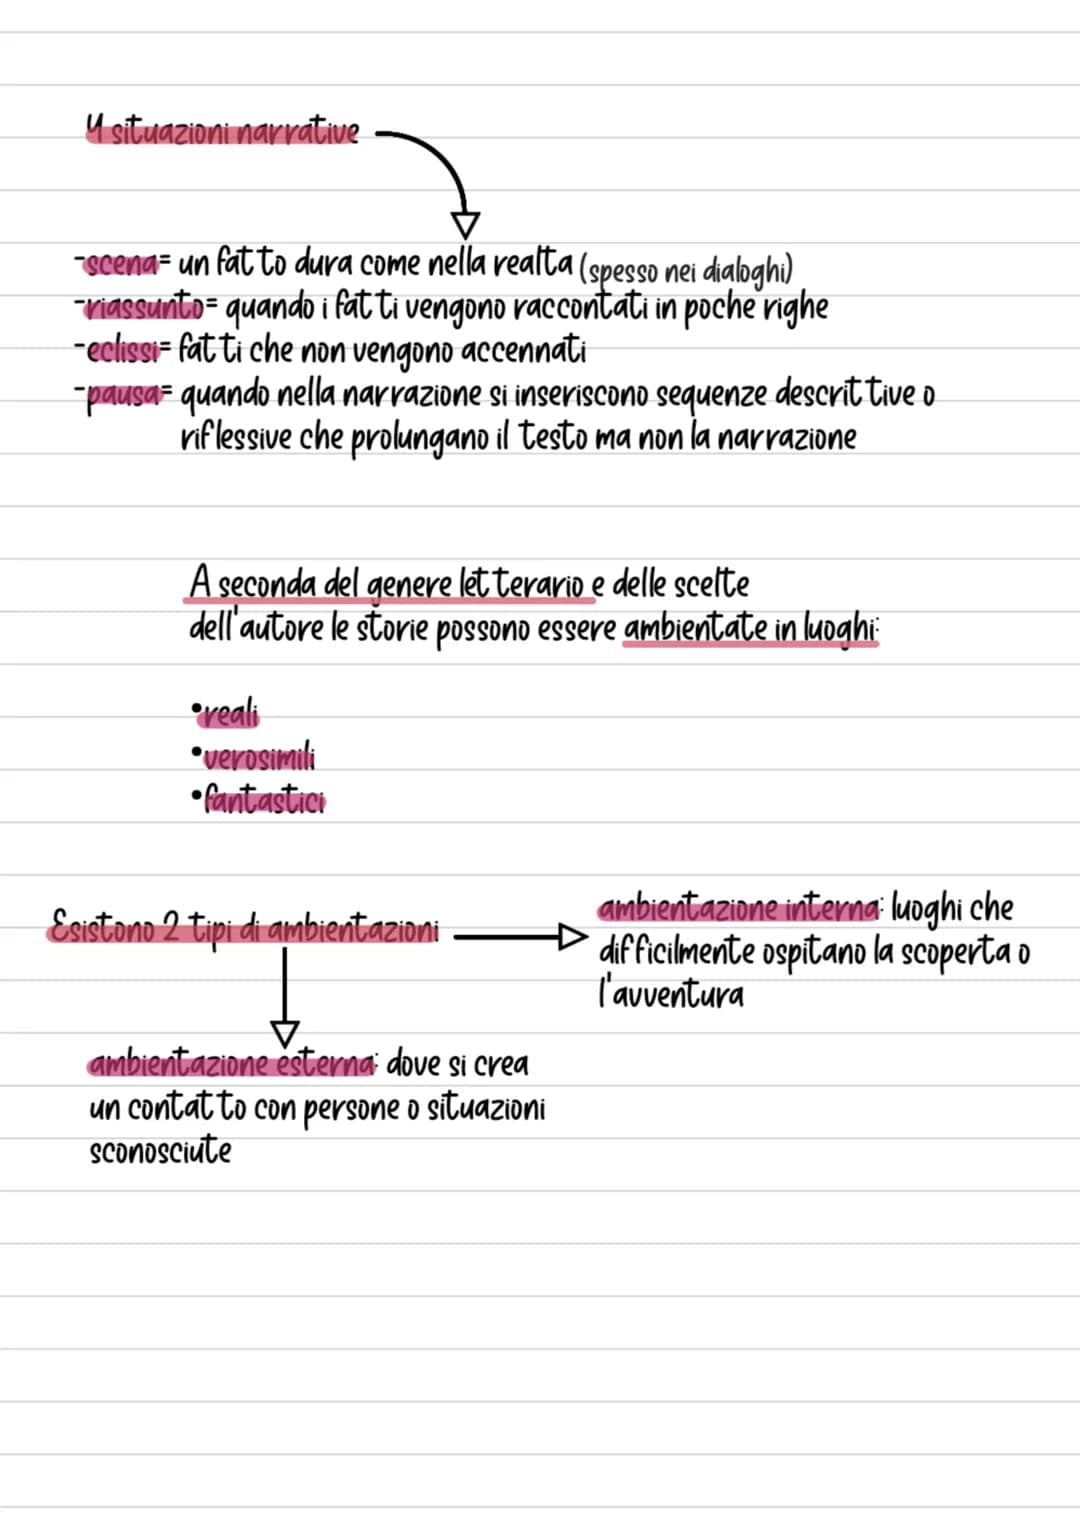 4 situazioni narrative
-scena= un fatto dura come nella realta (spesso nei dialoghi)
-riassunto= quando i fatti vengono raccontati in poche righe
-eclissi= fatti che non vengono accennati
-pausa= quando nella narrazione si inseriscono sequenze descrittive o
riflessive che prolungano il testo ma non la narrazione
A seconda del genere letterario e delle scelte
dell'autore le storie possono essere ambientate in luoghi:
•reali
•verosimili
•fantastici
Esistono 2 tipi di ambientazioni
ambientazione interna: luoghi che
difficilmente ospitano la scoperta o
l'avventura
ambientazione esterna: dove si crea
un contatto con persone o situazioni
sconosciute